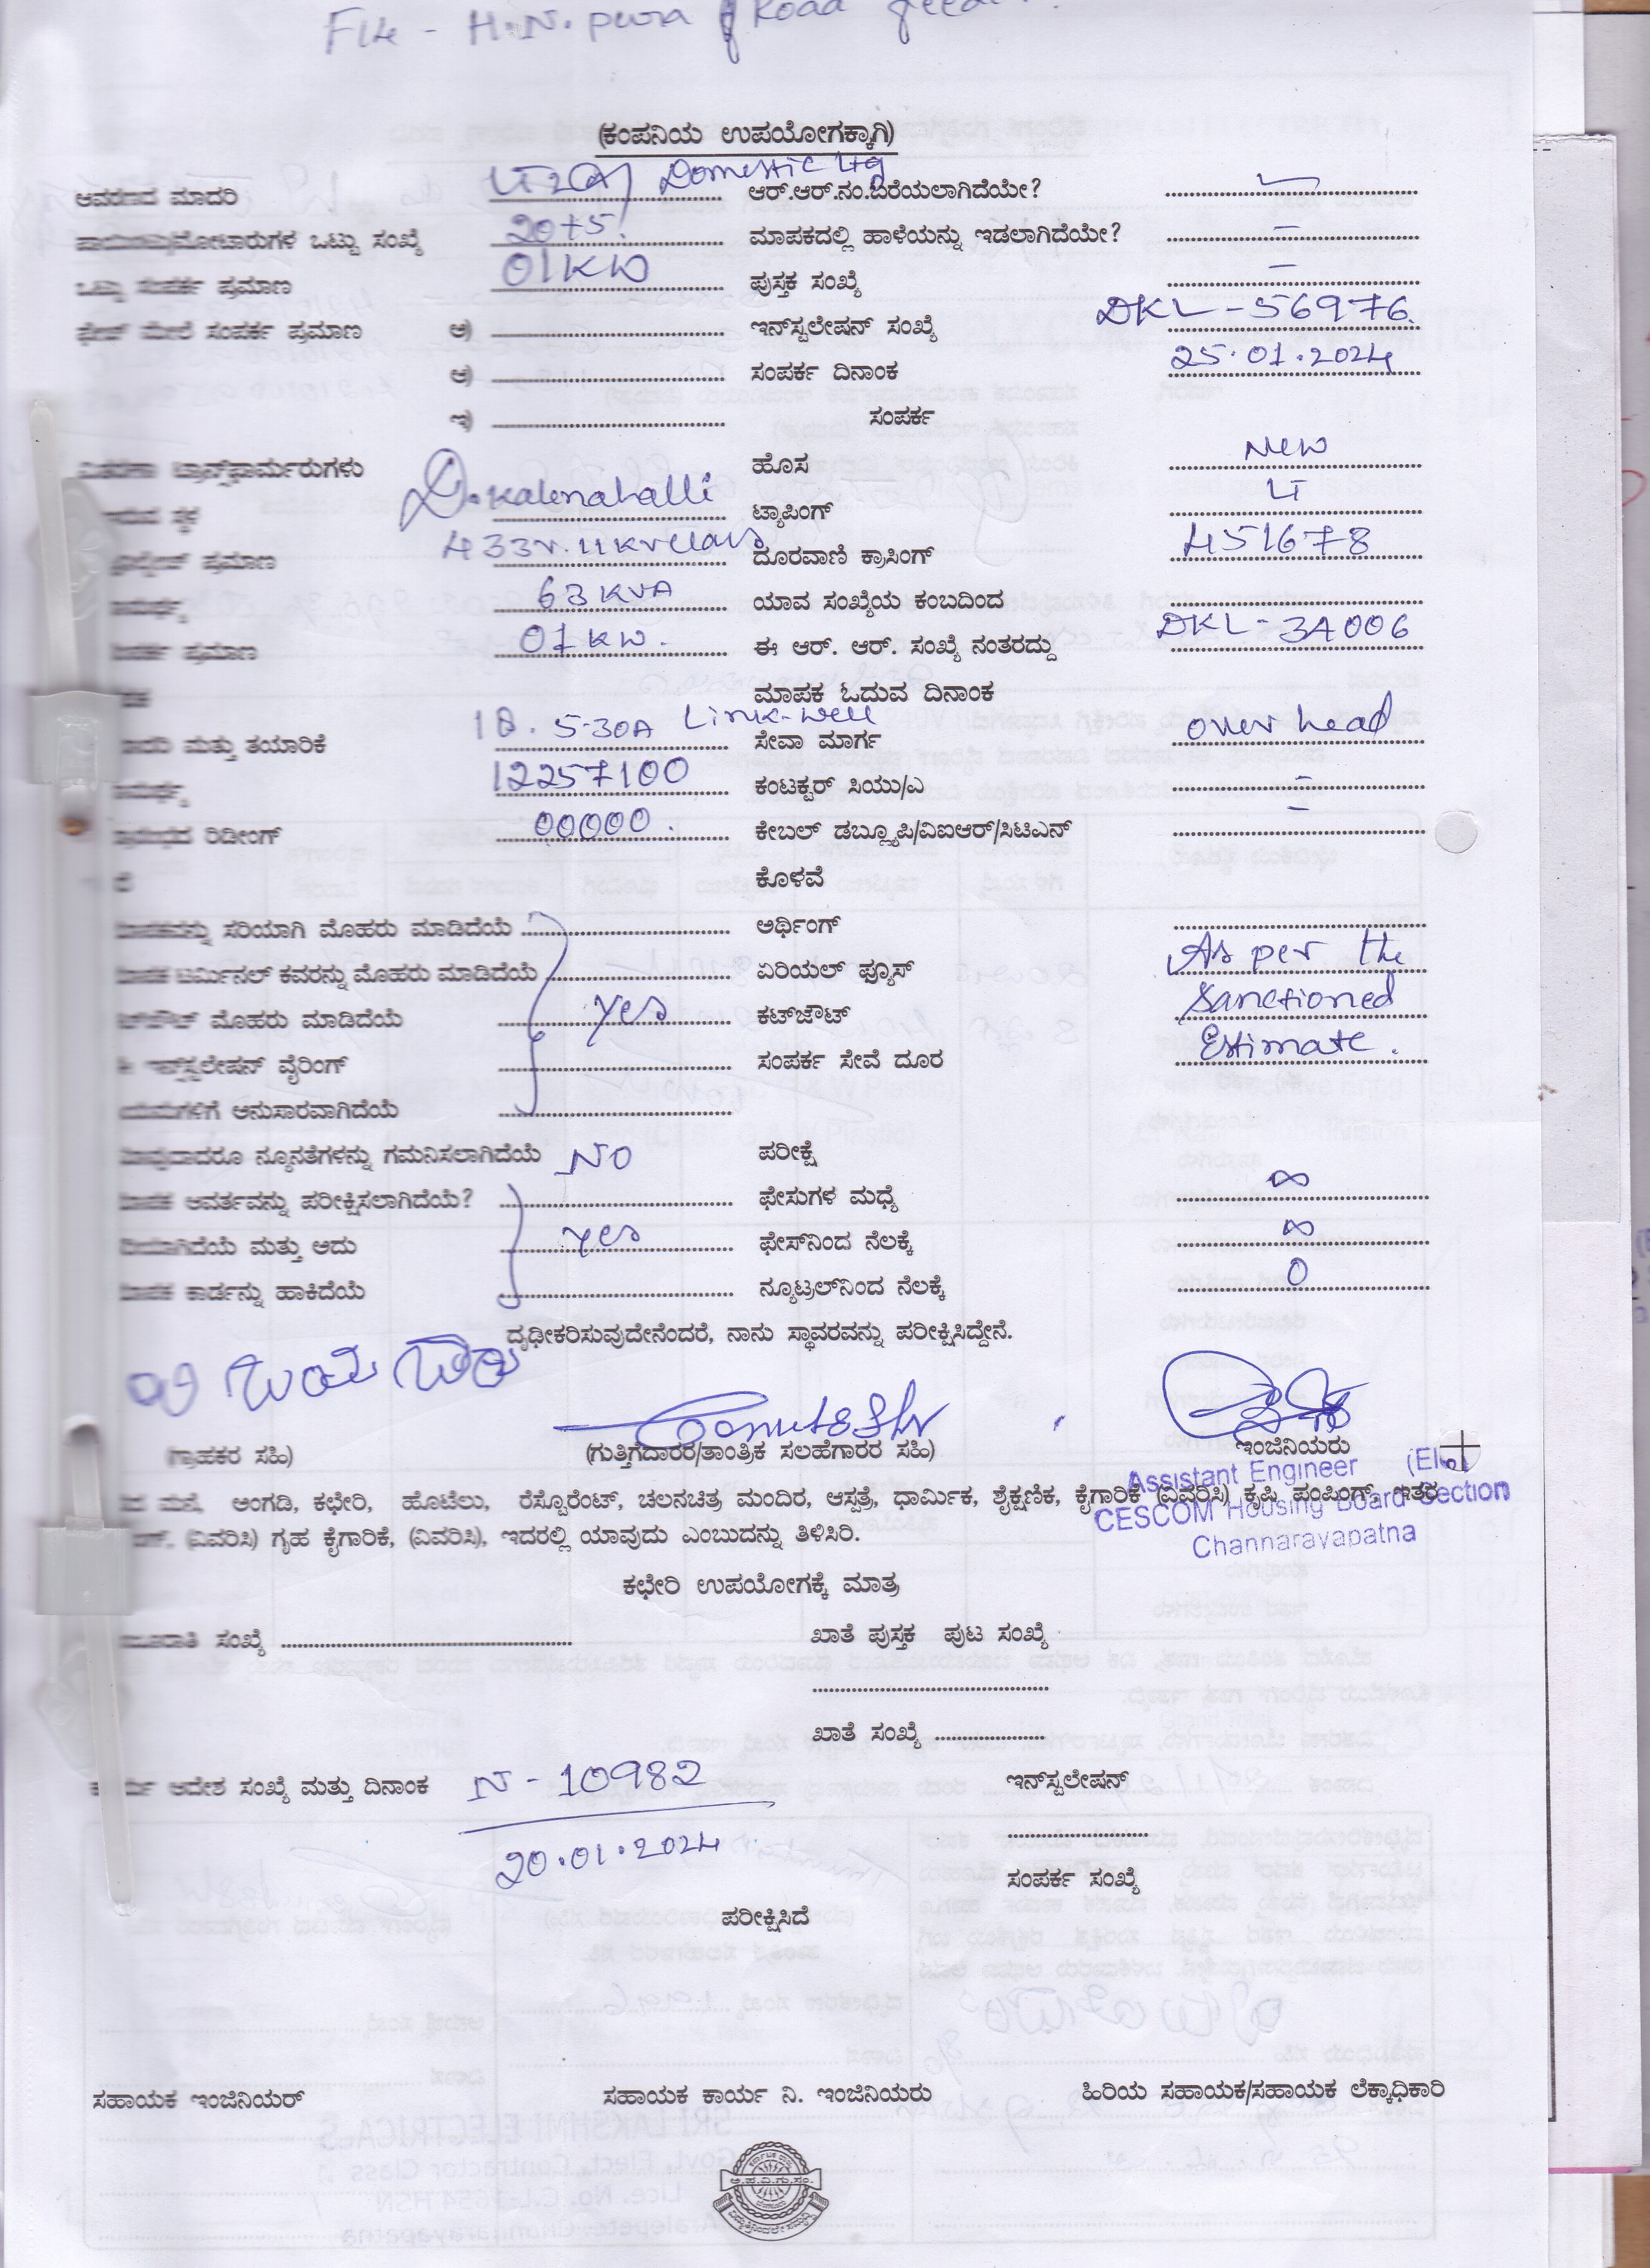 F14 - H.N. pura Road
(ಕಂಪನಿಯ ಉಪಯೋಗಕ್ಕಾಗಿ)
ಆವರಣದ ಮಾದರಿ LT 2(A) Domestic Ltg ಆರ್.ಆರ್.ನಂ.ಬರೆಯಲಾಗಿದೆಯೇ?
ಒಟ್ಟು ಸಂಖ್ಯೆ 20+5. ಮಾಪಕದಲ್ಲಿ ಹಾಳೆಯನ್ನು ಇಡಲಾಗಿದೆಯೇ? -
ಒಟ್ಟು ಸಂಪರ್ಕ ಪ್ರಮಾಣ 01KW ಪುಸ್ತಕ ಸಂಖ್ಯೆ -
ಮೇಲೆ ಸಂಪರ್ಕ ಪ್ರಮಾಣ ಅ) ಇನ್‌ಸ್ಟಲೇಷನ್ ಸಂಖ್ಯೆ DKL-56976.
ಆ) ಸಂಪರ್ಕ ದಿನಾಂಕ 25.01.2024
ಇ) ಸಂಪರ್ಕ
ವಿತರಣಾ ಟ್ರಾನ್ಸ್‌ಫಾರ್ಮರುಗಳು ಹೊಸ New
ಸ್ಥಳ D.Kalenahalli ಟ್ಯಾಪಿಂಗ್ LT
ಪ್ರಮಾಣ 433v. 11Kv ದೂರವಾಣಿ ಕ್ರಾಸಿಂಗ್ 451678
63 KVA ಯಾವ ಸಂಖ್ಯೆಯ ಕಂಬದಿಂದ
ಪ್ರಮಾಣ 01KW. ಈ ಆರ್. ಆರ್. ಸಂಖ್ಯೆ ನಂತರದ್ದು DKL-34006
ಮಾಪಕ ಓದುವ ದಿನಾಂಕ
ಮತ್ತು ತಯಾರಿಕೆ 1Ø. 5-30A Link-well ಸೇವಾ ಮಾರ್ಗ over head
12257100 ಕಂಟಕ್ಟರ್ ಸಿಯು/ಎ -
ರಿಡೀಂಗ್ 00000. ಕೇಬಲ್ ಡಬ್ಲ್ಯೂಪಿ/ವಿಐಆರ್/ಸಿಟಿಎನ್ -
ಕೊಳವೆ
ಸರಿಯಾಗಿ ಮೊಹರು ಮಾಡಿದೆಯೆ ಅರ್ಥಿಂಗ್
ಟರ್ಮಿನಲ್ ಕವರನ್ನು ಮೊಹರು ಮಾಡಿದೆಯೆ ಏರಿಯಲ್ ಫ್ಯೂಸ್ As per the
ಮೊಹರು ಮಾಡಿದೆಯೆ Yes ಕಟ್‌ಜೌಟ್ Sanctioned
ಇನ್‌ಸ್ಟಲೇಷನ್ ವೈರಿಂಗ್ ಸಂಪರ್ಕ ಸೇವೆ ದೂರ Estimate.
ಅನುಸಾರವಾಗಿದೆಯೆ
ನ್ಯೂನತೆಗಳನ್ನು ಗಮನಿಸಲಾಗಿದೆಯೆ NO ಪರೀಕ್ಷೆ
ಮಾಪಕ ಆವರ್ತವನ್ನು ಪರೀಕ್ಷಿಸಲಾಗಿದೆಯೆ? ಫೇಸುಗಳ ಮಧ್ಯೆ ∞
ಮತ್ತು ಅದು Yes ಫೇಸ್‌ನಿಂದ ನೆಲಕ್ಕೆ ∞
ಕಾರ್ಡನ್ನು ಹಾಕಿದೆಯೆ ನ್ಯೂಟ್ರಲ್‌ನಿಂದ ನೆಲಕ್ಕೆ 0
ದೃಢೀಕರಿಸುವುದೇನೆಂದರೆ, ನಾನು ಸ್ಥಾವರವನ್ನು ಪರೀಕ್ಷಿಸಿದ್ದೇನೆ.
(ಗ್ರಾಹಕರ ಸಹಿ) (ಗುತ್ತಿಗೆದಾರರ/ತಾಂತ್ರಿಕ ಸಲಹೆಗಾರರ ಸಹಿ) ಇಂಜಿನಿಯರು
Assistant Engineer (Ele)
ಮನೆ, ಅಂಗಡಿ, ಕಛೇರಿ, ಹೊಟೆಲು, ರೆಸ್ಟೊರೆಂಟ್, ಚಲನಚಿತ್ರ ಮಂದಿರ, ಆಸ್ಪತ್ರೆ, ಧಾರ್ಮಿಕ, ಶೈಕ್ಷಣಿಕ, ಕೈಗಾರಿಕೆ (ವಿವರಿಸಿ) ಕೃಷಿ ಪಂಪಿಂಗ್, ಇತರ
CESCOM Housing Board Section
(ವಿವರಿಸಿ) ಗೃಹ ಕೈಗಾರಿಕೆ, (ವಿವರಿಸಿ), ಇದರಲ್ಲಿ ಯಾವುದು ಎಂಬುದನ್ನು ತಿಳಿಸಿರಿ.
Channarayapatna
ಕಛೇರಿ ಉಪಯೋಗಕ್ಕೆ ಮಾತ್ರ
ಸಂಖ್ಯೆ ಖಾತೆ ಪುಸ್ತಕ ಪುಟ ಸಂಖ್ಯೆ
ಖಾತೆ ಸಂಖ್ಯೆ
ಆದೇಶ ಸಂಖ್ಯೆ ಮತ್ತು ದಿನಾಂಕ N-10982 ಇನ್‌ಸ್ಟಲೇಷನ್
20.01.2024
ಸಂಪರ್ಕ ಸಂಖ್ಯೆ
ಪರೀಕ್ಷಿಸಿದೆ
ಸಹಾಯಕ ಇಂಜಿನಿಯರ್ ಸಹಾಯಕ ಕಾರ್ಯ ನಿ. ಇಂಜಿನಿಯರು ಹಿರಿಯ ಸಹಾಯಕ/ಸಹಾಯಕ ಲೆಕ್ಕಾಧಿಕಾರಿ